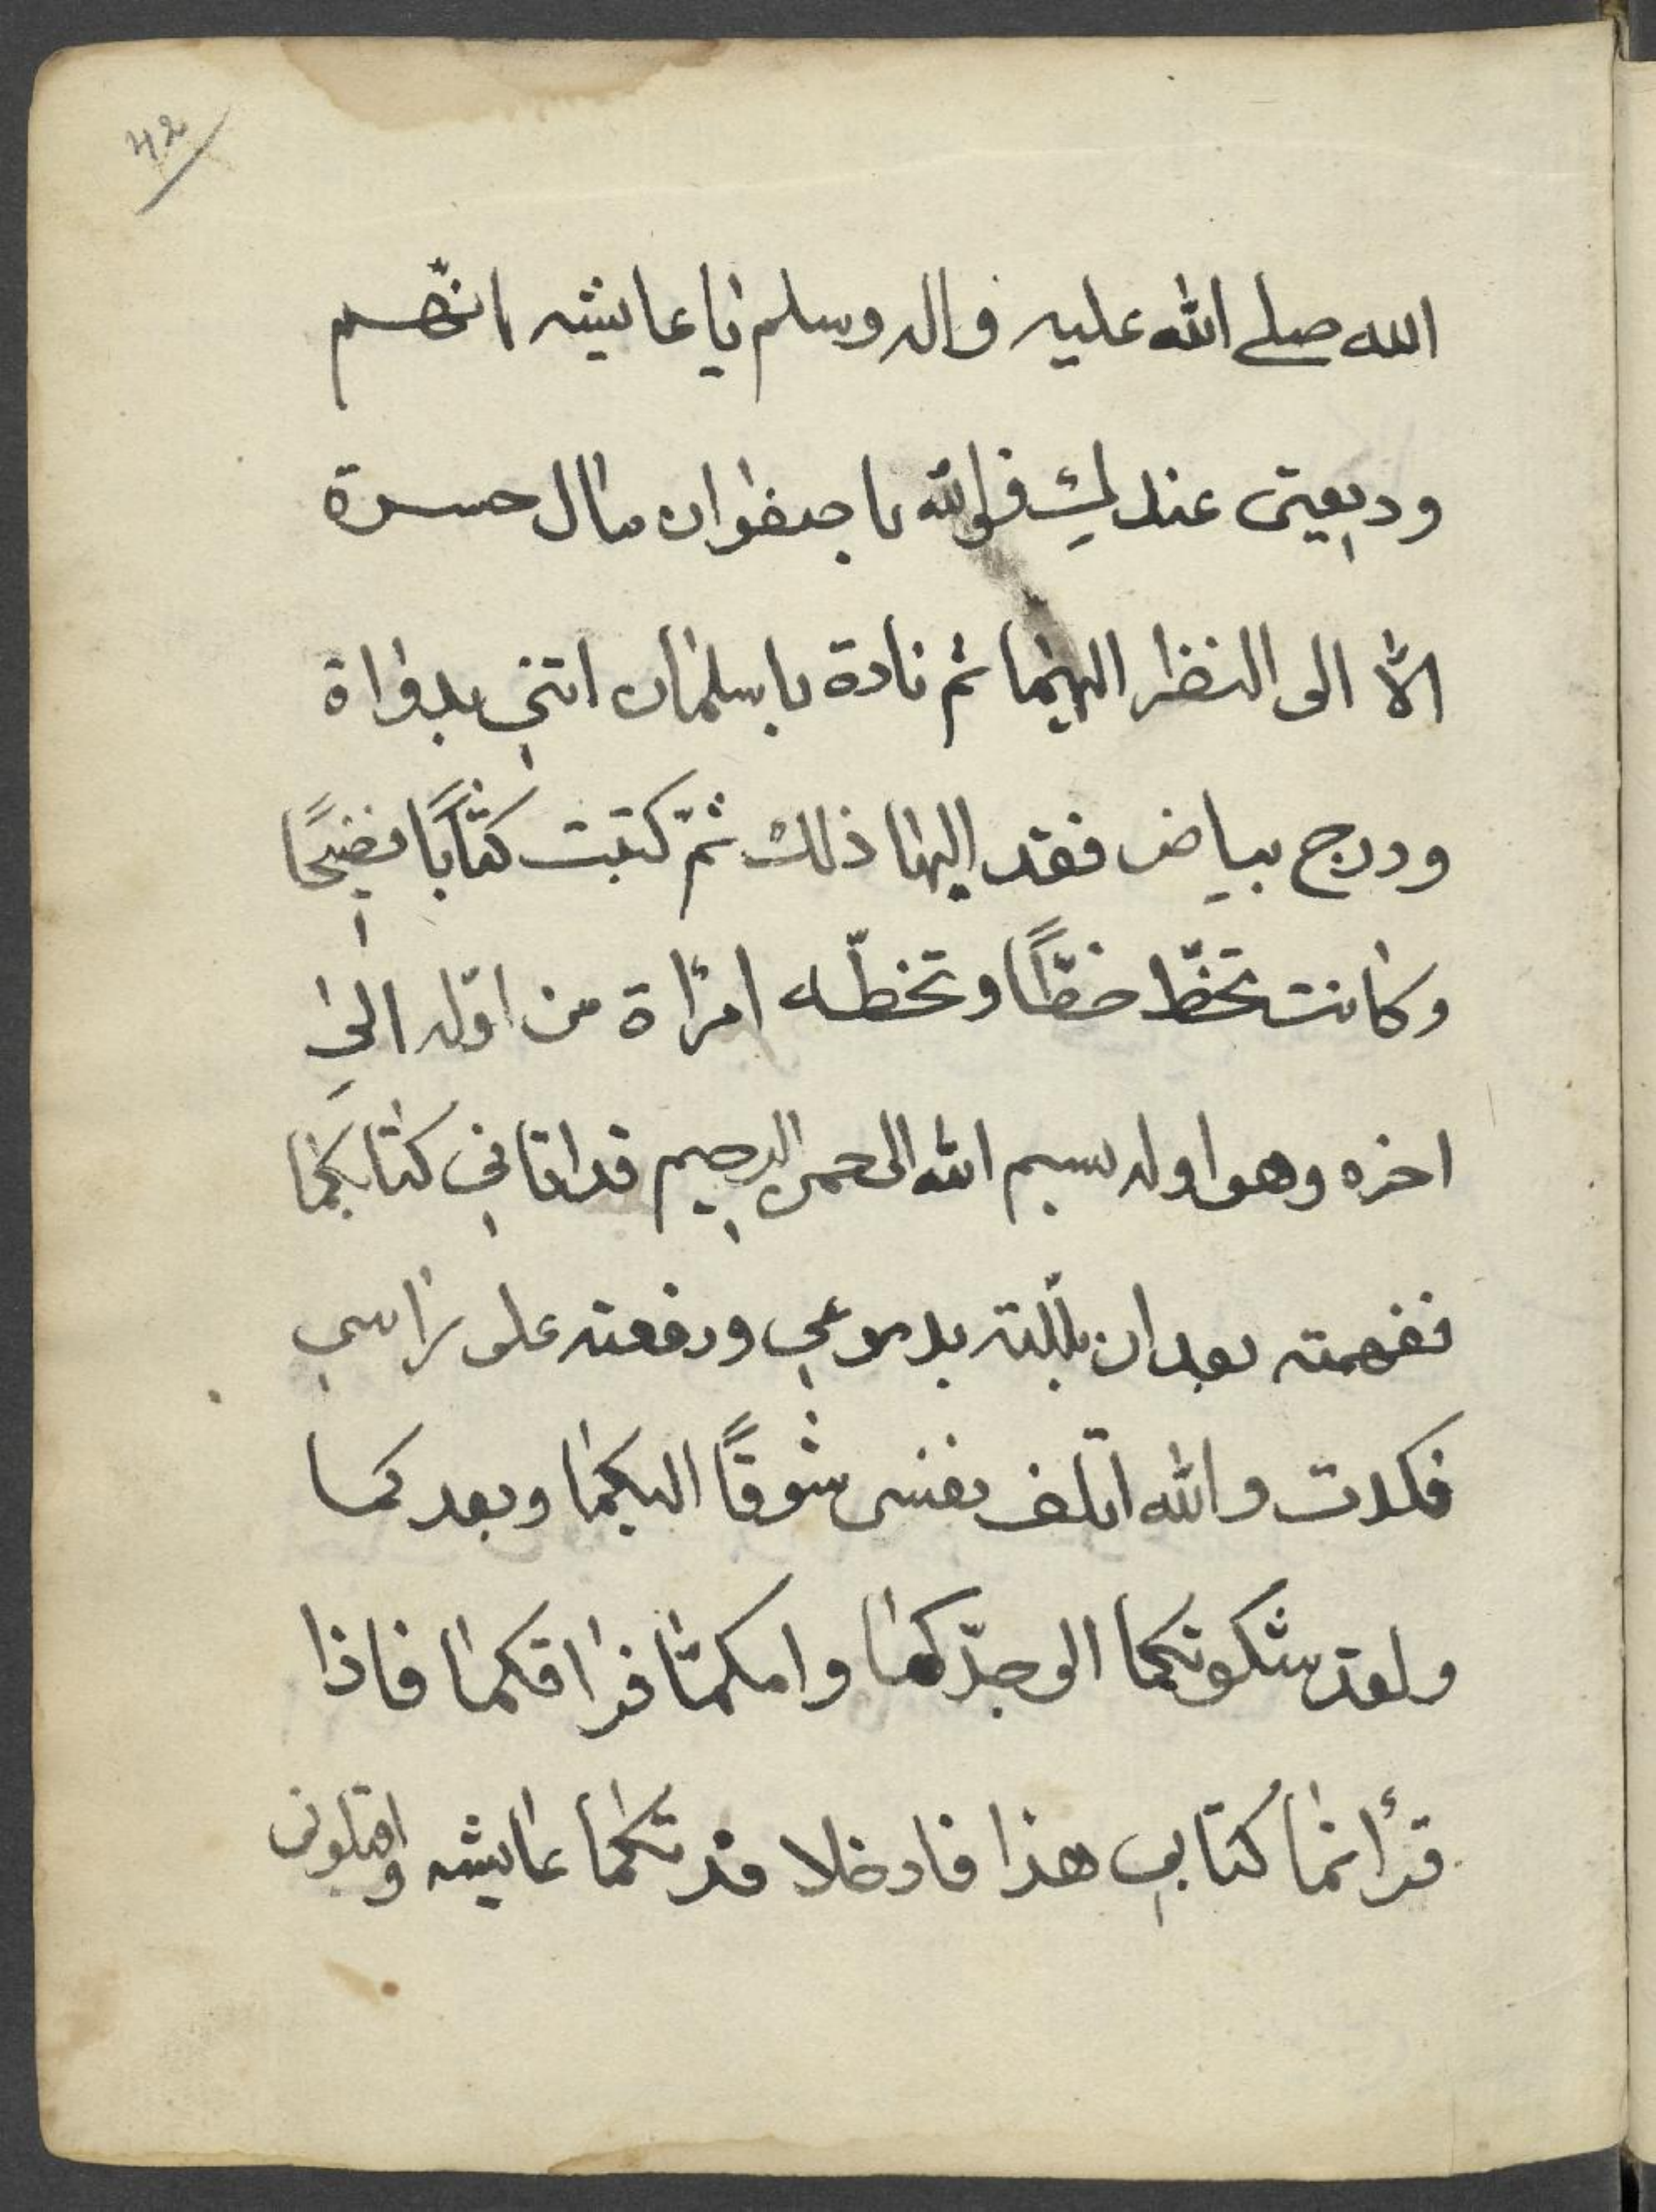 42
الله صلے الله عليه واله وسلم يا عايشه انهم
وديعتى عندك فوالله يا صفوان مال حسرة
الا الى النظر اليهما ثم نادة يا سلمان اتني بدواة
ودرج بياض فقد اليها ذلك ثمّ كتبت كتابًا فضيحًا
وكانت تخطّ خطًّا وتخطّه امرأة من اوّله الى
اخره وهو اوله بسم الله الرحمن الرحيم قد اتاني كتابكما
ففهمته بعد ان بلّلته بدموعي ورفعته على راسي
فكدت والله اتلف نفسى شوقًا اليكما وبعد كما
ولقد شكوتكما الى جدّكما فراقكما فاذا
قرأتما كتابي هذا فادخلا عايشه